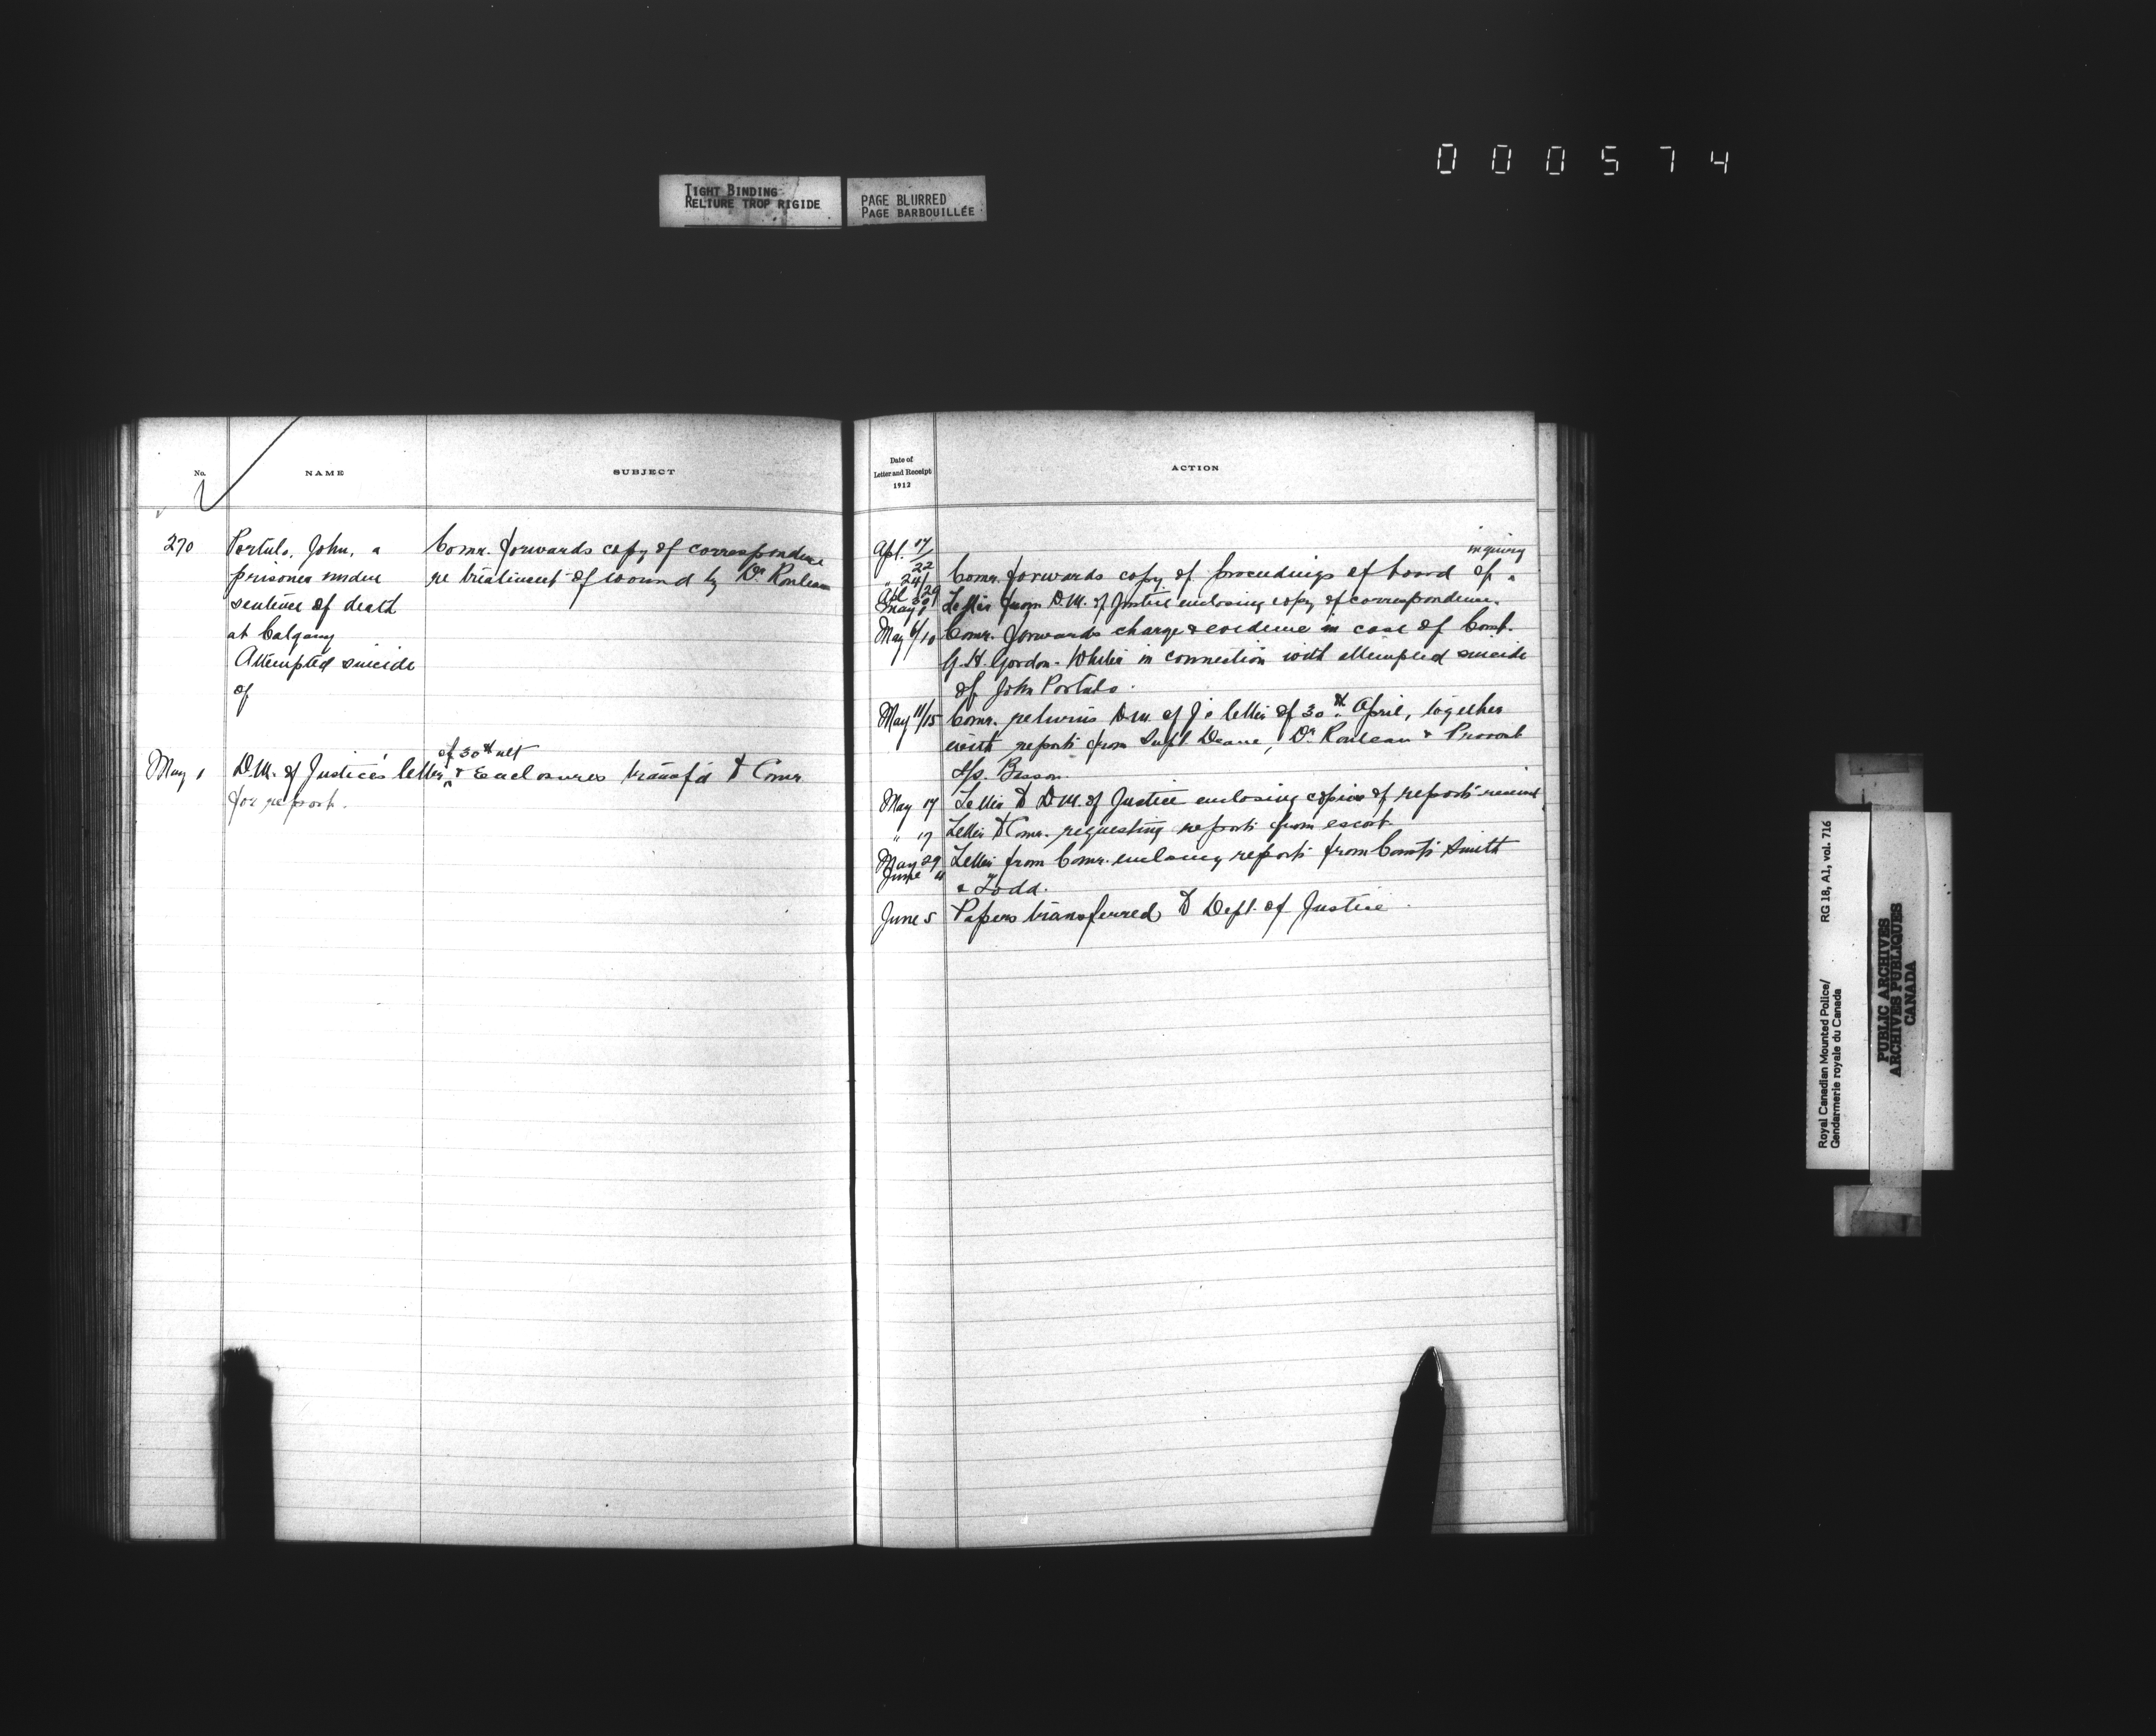 000574
TIGHT BINDING
RELIURE TROP RIGIDE
PAGE BLURRED
PAGE BARBOUILLÉE
No.
NAME
SUBJECT
270
Portulo, John, a
prisoner under
sentence of death
at Calgary
Attempted suicide
of
Comr. forwards copy of correspondence
re treatment of wound by Dr. Rouleau
of 30th ult
May 1 D.M. of Justice's letter ^ & Enclosures transf'd to Comr.
for report.
Date of
Letter and Receipt
1912
ACTION
Apl. 17/22
inquiry
" 24/ Comr. forwards copy of proceedings of board of ^
Apl 30/ May 1 Letter from D.M. of Justice enclosing copy of correspondence.
May 6/10 Comr. forwards charge & evidence in case of Const.
G.H. Gordon-White in connection with attempted suicide
of John Portulo.
May 11/15 Comr. returns D.M. of J's letter of 30th April, together
with reports from Supt Deane, Dr. Rouleau & Provost
May 17 Letter to D.M. of Justice enclosing copies of reports received
" 17 Letter to Comr. requesting reports from escort.
May 29 June 4 Letter from Comr. enclosing reports from Consts Smith
& Todd.
June 5 Papers transferred to Dept. of Justice.
Royal Canadian Mounted Police/
Gendarmerie royale du Canada
RG 18, A1, vol. 716
PUBLIC ARCHIVES
ARCHIVES PUBLIQUES
CANADA